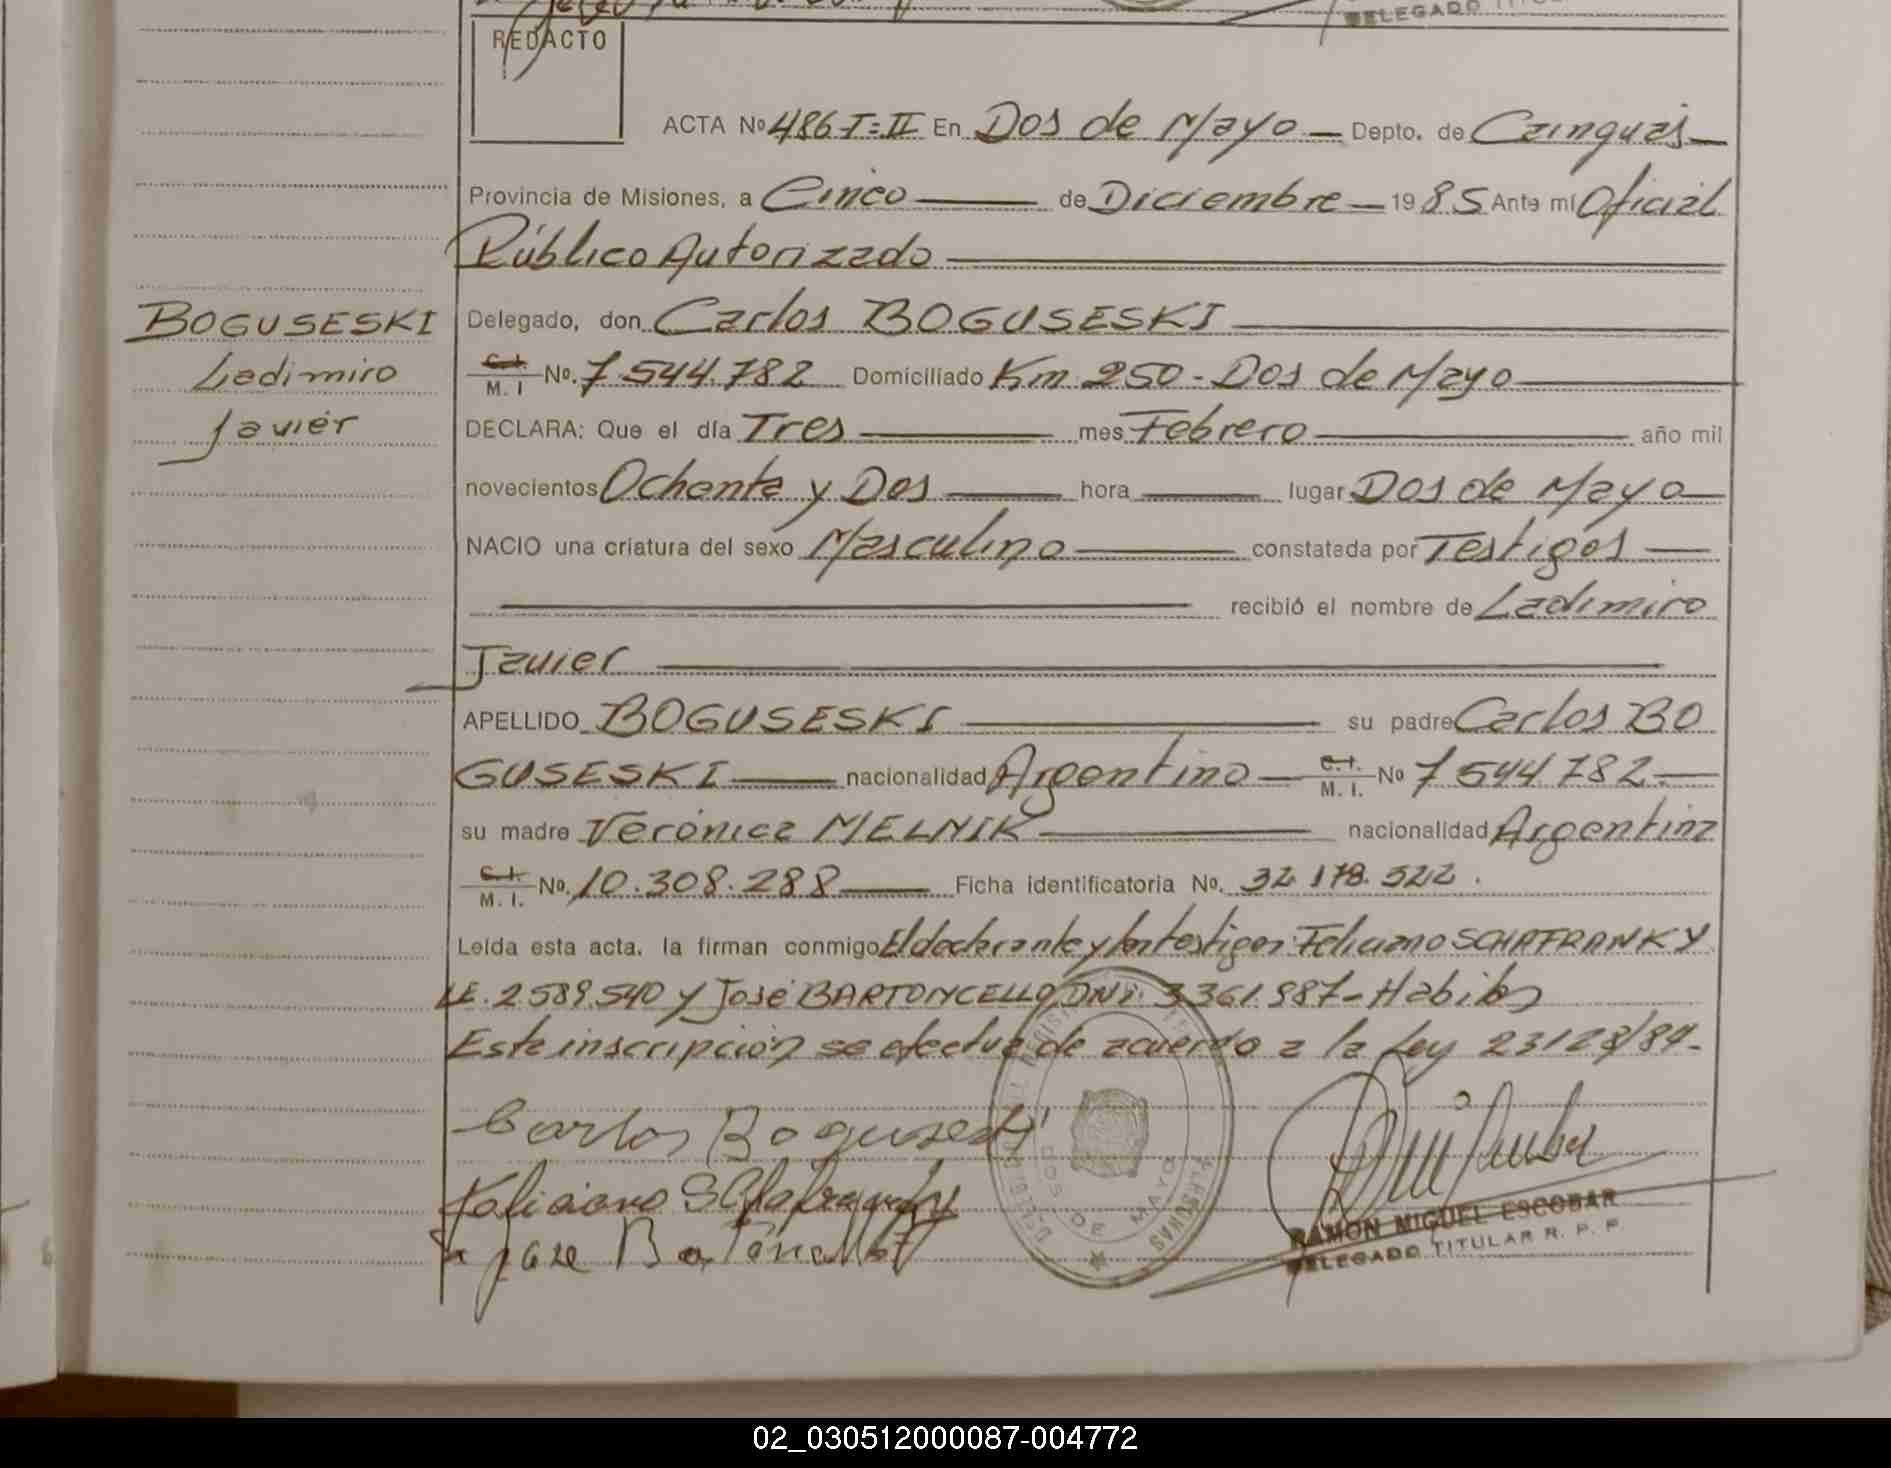 DELEGADO TITULAR
REDACTO
ACTA Nº 486 T=II En Dos de Mayo — Depto. de Cainguás —
Provincia de Misiones, a Cinco — de Diciembre — 1985 Ante mí Oficial
Público Autorizado
BOGUSESKI
Ladimiro
Javier
Delegado, don Carlos BOGUSESKI
C.I. M. I Nº. 7.544.782 Domiciliado Km 250 - Dos de Mayo
DECLARA: Que el día Tres — mes Febrero — año mil
novecientos Ochenta y Dos — hora — lugar Dos de Mayo
NACIO una criatura del sexo Masculino — constatada por Testigos —
recibió el nombre de Ladimiro
Javier
APELLIDO BOGUSESKI — su padre Carlos BO
GUSESKI — nacionalidad Argentino — C.I. M. I. Nº 7.544.782 —
su madre Verónica MELNIK — nacionalidad Argentina
C.I. M. I. Nº. 10.308.288 — Ficha identificatoria Nº. 32.178.522.
Leída esta acta, la firman conmigo El declarante y los testigos: Feliciano SCHAFRANKY
LE. 2.589.540 y José BARTONCELLO DNI. 3.361.987 - Hábiles
Esta inscripción se efectua de acuerdo a la Ley 23128/84-
Carlos Boguseski
Feliciano Schafranky
Jose
DOS DE MAYO
RAMON MIGUEL ESCOBAR
DELEGADO TITULAR R. P. P.
02_030512000087-004772